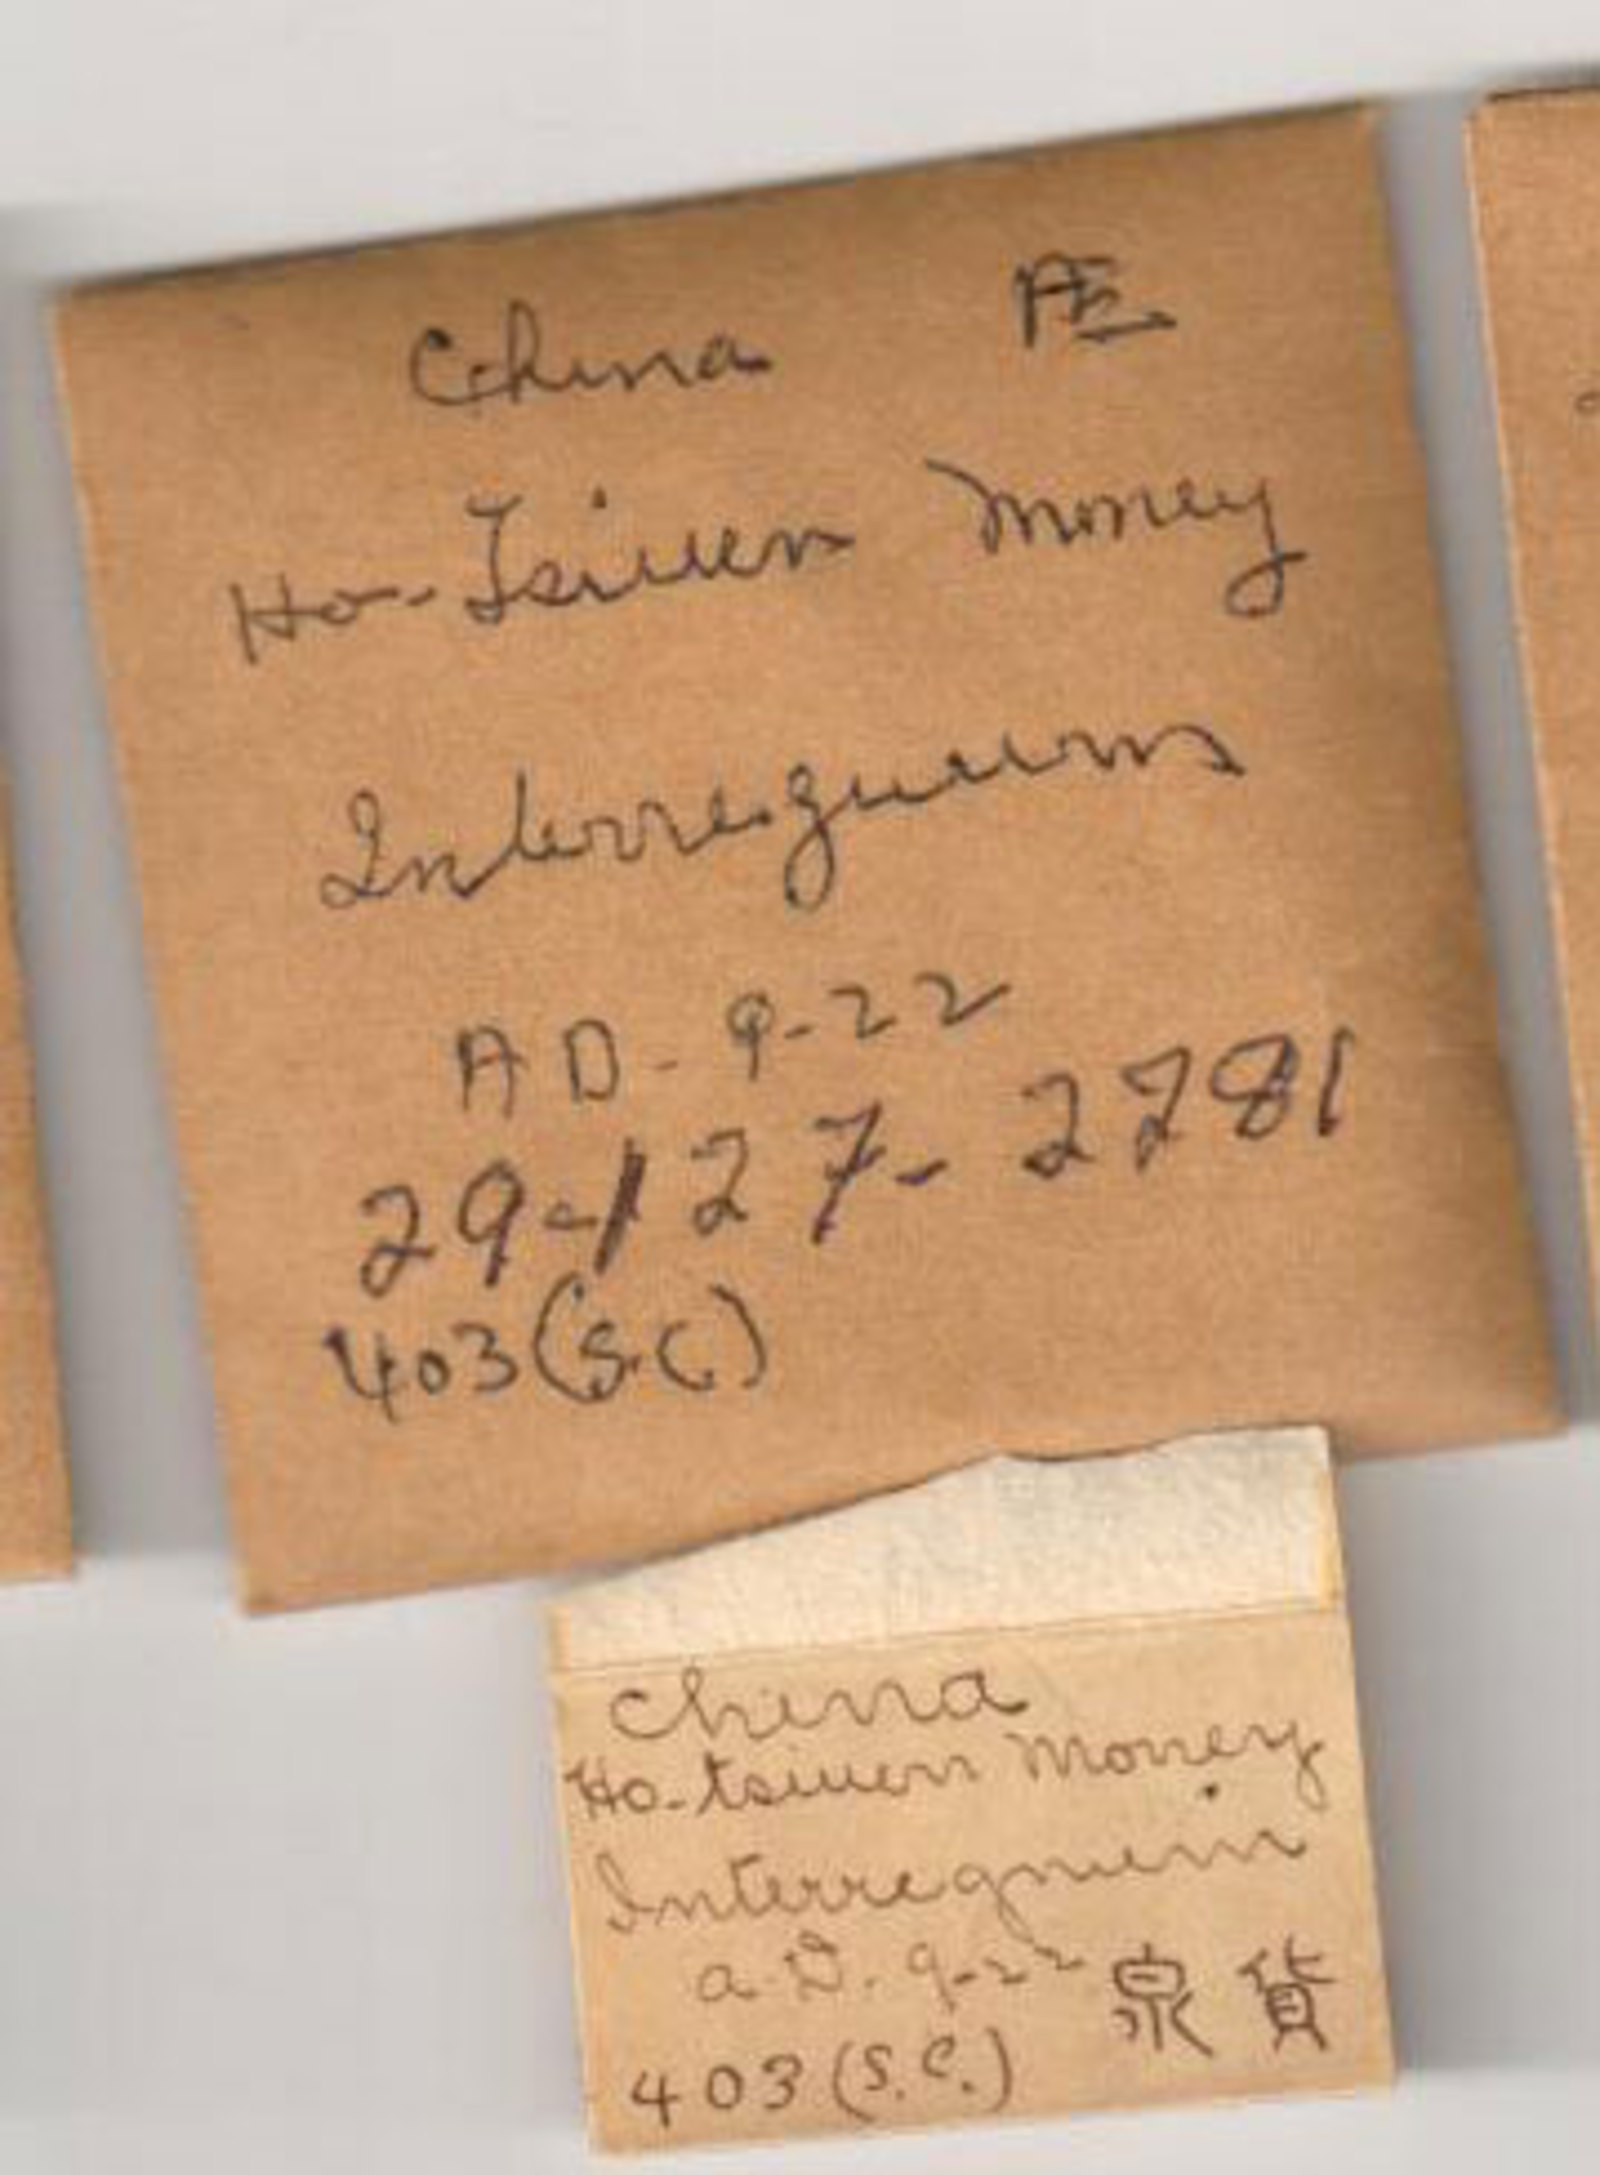 China Æ
Ho-Tsiuen Money
Interregnum
AD- 9-22
29-127-2281
403(S.C)
China
Ho-tsiuen Money
Interregnum
A.D. 9-22 泉貨
403 (S.C.)